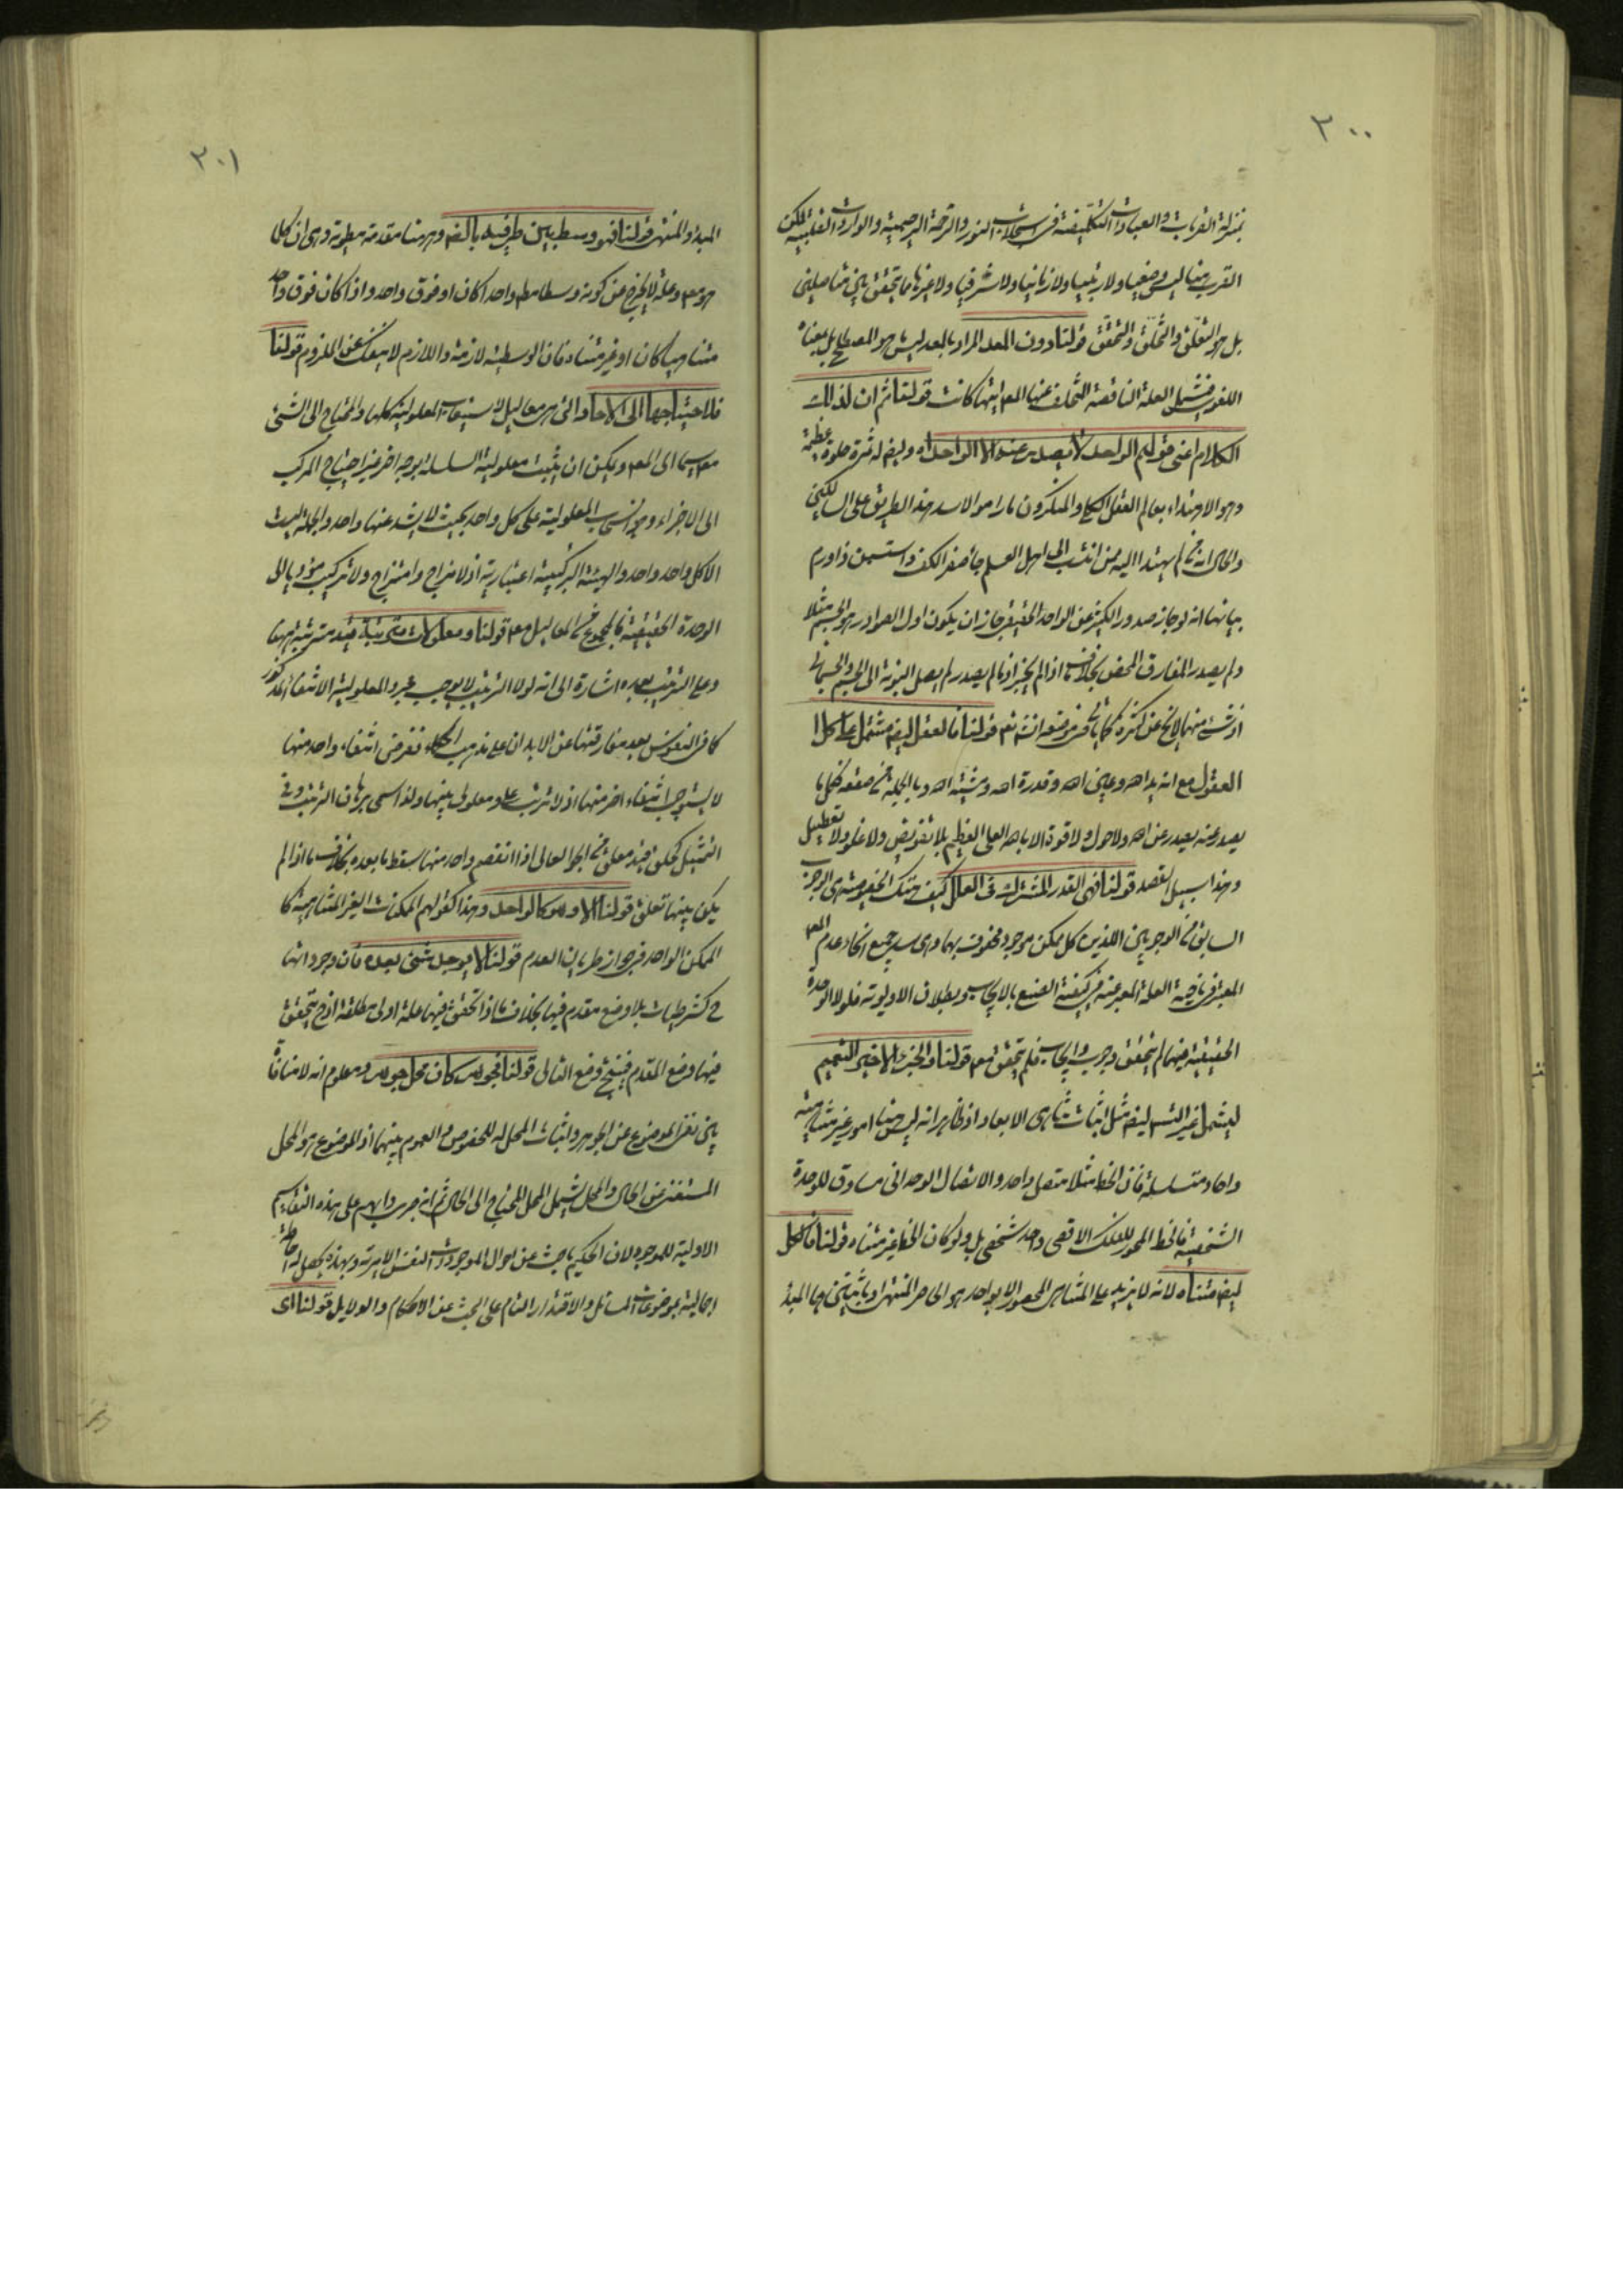 ٣٠٠
بمنزلة القربات والعبادات التكليفية فى استجلاب النور والرحمة الرحيمية والواردات القلبية لكن
القرب هنا ليس وضعيا ولا رتبيا ولا زمانيا ولا شرفيا ولا غيرها مما يتحقق بين متاصلين
بل هو التعلق والتخلق والتحقق قولنا دون المعد المراد بالمعد ليس هو المصطلح بل بمعناه
اللغوى فيشمل العلة الناقصة التخلف عنها المع ايتها كانت قولنا ثم ان لذلك
الكلام اعنى قولهم الواحد لا يصدر عنه الا الواحد اه وايضا له ثمرة حلوة عظيمة
وهو الاهتداء بعالم العقل الكلى والمنكرون ما راموا الا سد هذا الطريق على السالكين
والحال انه من لم يهتد اليه ممن انتسب الى اهل العلم جاء صفر الكف واستسمن ذا ورم
بيانها انه لو جاز صدور الكثير عن الواحد الحقيقى جاز ان يكون اول الصوادر هو الجسم مثلا
ولم يصدر المفارق المحض بخلاف ما اذا لم يجز اذ ما لم يصدر لم يصل النوبة الى الجسم والجسمانى
اذ شىء منهما لا يخ عن كثرة كما ياتى فى موضعه انشاءالله تعم قولنا فالعقل ايضا مشتمل على كل
العقول مع انه يد الله وعين الله وقدرة الله ومشية الله وبالجملة من صقعه فكل ما
يصدر عنه يصدر عن الله ولا حول ولا قوة الا بالله العلى العظيم بلا تفويض ولا غلو ولا تعطيل
وهذا سبيل القصد قولنا فهى القدر المشترك فى العلل كيف وتلك الخصوصية هى الوجوب
السابق من الوجوبين اللذين كل ممكن موجود محفوف بهما وهى سد جميع انحاء عدم المع
المعبر فى ناحية العلة المعبر عنه فى كيفية الصنع بالايجاب وبطلان الاولوية فلولا الوحدة
الحقيقية فيهما لم يتحقق وجوب وايجاب فلم يتحقق مع قولنا والخير بالاخير التعميم
ليشمل غير التسلسل ايضا مثل اثبات تناهى الابعاد اذ ظاهر انه ليس هنا امور غير متناهية
واحاد متسلسلة فان الخط مثلا متصل واحد والاتصال الوحدانى مساوق للوحدة
الشخصية فالخط المحور للفلك الاقصى واحد شخصى بل ولو كان الخط غير متناه قولنا فالكل
ايضا متناه لانه لا يزيد على المتناهى المحصور الا بواحد هو الحاصر المنتهى او باثنين هما المبدأ
٣٠١
المبدأ والمنتهى قولنا فهو وسط بين طرفيه بالضم وههنا مقدمة مطوية وهى ان كلما
هو مع وعلة لا يخرج عن كونه وسطا سواء واحدا كان او فوق واحد واذا كان فوق واحد
متناهيا كان او غير متناه فان الوسطية لازمة واللازم لا ينفك عن الملزوم قولنا
فلاحتياجها الى الاحاد التى هى معاليل لاستيعاب المعلولية كلها والمحتاج الى الشىء
مع سيما الى المع ويمكن ان يثبت معلولية السلسلة بوجه اخر غير احتياج المركب
الى الاجزاء وهو انسحاب المعلولية على كل واحد بحيث لا يشذ عنها واحد والجملة ليست
الا كل واحد واحد والهيئة التركيبية اعتبارية اذ لا مزاج وامتزاج ولا تركيب مؤديا الى
الوحدة الحقيقية فالمجموع من المعاليل مع قولنا ومعلولات مترتبة فيه مترتبة ههنا
وعلى الترتب بعده اشارة الى انه لولا الترتب لا يوجب مجرد المعلولية الانتفاء المذكور
كما فى النفوس بعد مفارقتها عن الابدان على مذهب الحكماء ففرض انتفاء واحد منها
لا يستوجب انتفاء اخر منها اذ لا ترتب على ومعلولى بينها ولذا سمى برهان الترتب وفى
التمثيل كحلق قيد معلق من الجو العالى اذا انفصم واحد منها سقط ما بعده بخلاف ما اذا لم
يكن بينها تعلق قولنا الا وهو كالواحد وهذا كقولهم الممكنات الغير المتناهية كا
الممكن الواحد فى جواز طريان العدم قولنا لا يوجد شىء بعده فان وجوداتها
ح كشرطيات بلا وضع مقدم فيها بخلاف ما اذا تحقق فيها علة اولى مطلقة اذ ح يتحقق
فيها وضع المقدم فينتج وضع التالى قولنا فجوهر كان محل جوهر ومعلوم انه لا منافاة
بين نفى الموضوع عن الجوهر واثبات المحل له للخصوص والعموم بينهما اذ الموضوع هو المحل
المستغنى عن الحال والمحل يشمل المحل المحتاج الى الحال ثم انه جرى دابهم على هذه التقاسيم
الاولية للموجود لان الحكيم باحث عن احوال الموجودات النفس الامرية وبهذه يحصل له احاطة
اجمالية بموضوعات المسائل والاقتدار التام على البحث عن الاحكام والدلايل قولنا اى